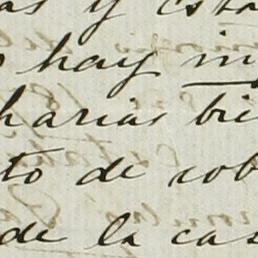 as y esta
hay in
harias bie
to de rob
de la cas